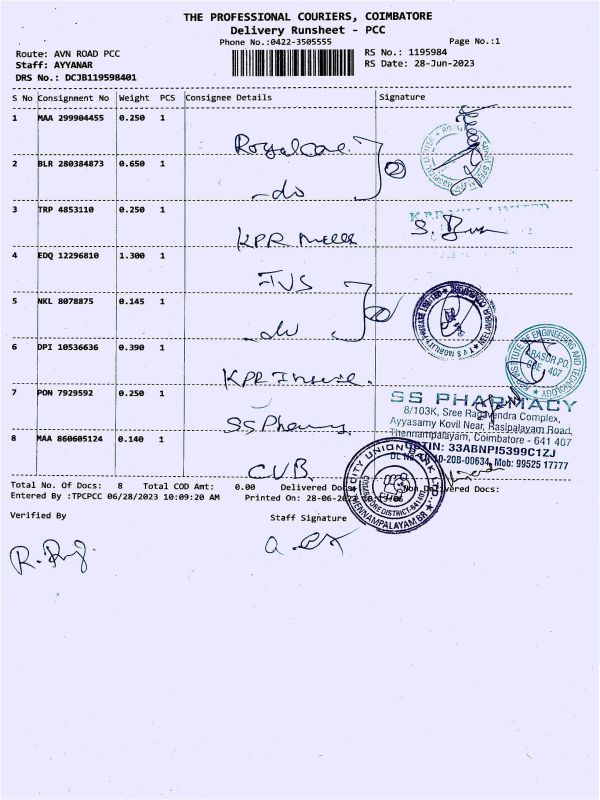 THE PROFESSIONAL COURIERS, COIMBATORE
Delivery Runsheet - PCC
Phone No.:0422-3505555
Page No.:1
Route: AVN ROAD PCC
RS No.: 1195984
Staff: AYYANAR
RS Date: 28-Jun-2023
DRS No.: DCJB119598401
S No Consignment No Weight PCS Consignee Details Signature
1 MAA 299904455 0.250 1
Royal Care
2 BLR 280384873 0.650 1
-do
3 TRP 4853110 0.250 1
KPR Mills
4 EDQ 12296810 1.300 1
TVS
5 NKL 8078875 0.145 1
-do
6 DPI 10536636 0.390 1
KPR
7 PON 7929592 0.250 1
SS Pharmacy
SS PHARMACY
8/103K, Sree Ragavendra Complex,
Ayyasamy Kovil Near, Rasipalayam Road,
Thennampalayam, Coimbatore - 641 407
GSTIN: 33ABNPI5399C1ZJ
20B-00634, Mob: 99525 17777
8 MAA 860605124 0.140 1
CUB
CITY UNION BANK LTD
COIMBATORE DISTRICT-641407
THENNAMPALAYAM BR
INSTITUTE OF ENGINEERING AND TECHNOLOGY
ARASUR PO.
CBE - 407
Total No. Of Docs: 8 Total COD Amt: 0.00 Delivered Docs: Non Delivered Docs:
Entered By :TPCPCC 06/28/2023 10:09:20 AM Printed On: 28-06-2023
Verified By
Staff Signature